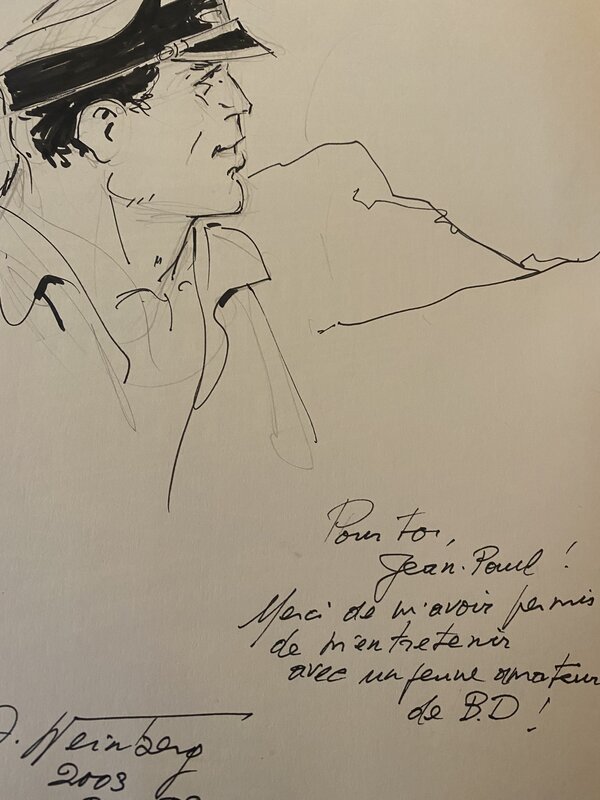 Pour toi,
Jean-Paul !
Merci de m'avoir permis
de m'entretenir
avec un jeune amateur
de B.D !
A. Weinberg
2003